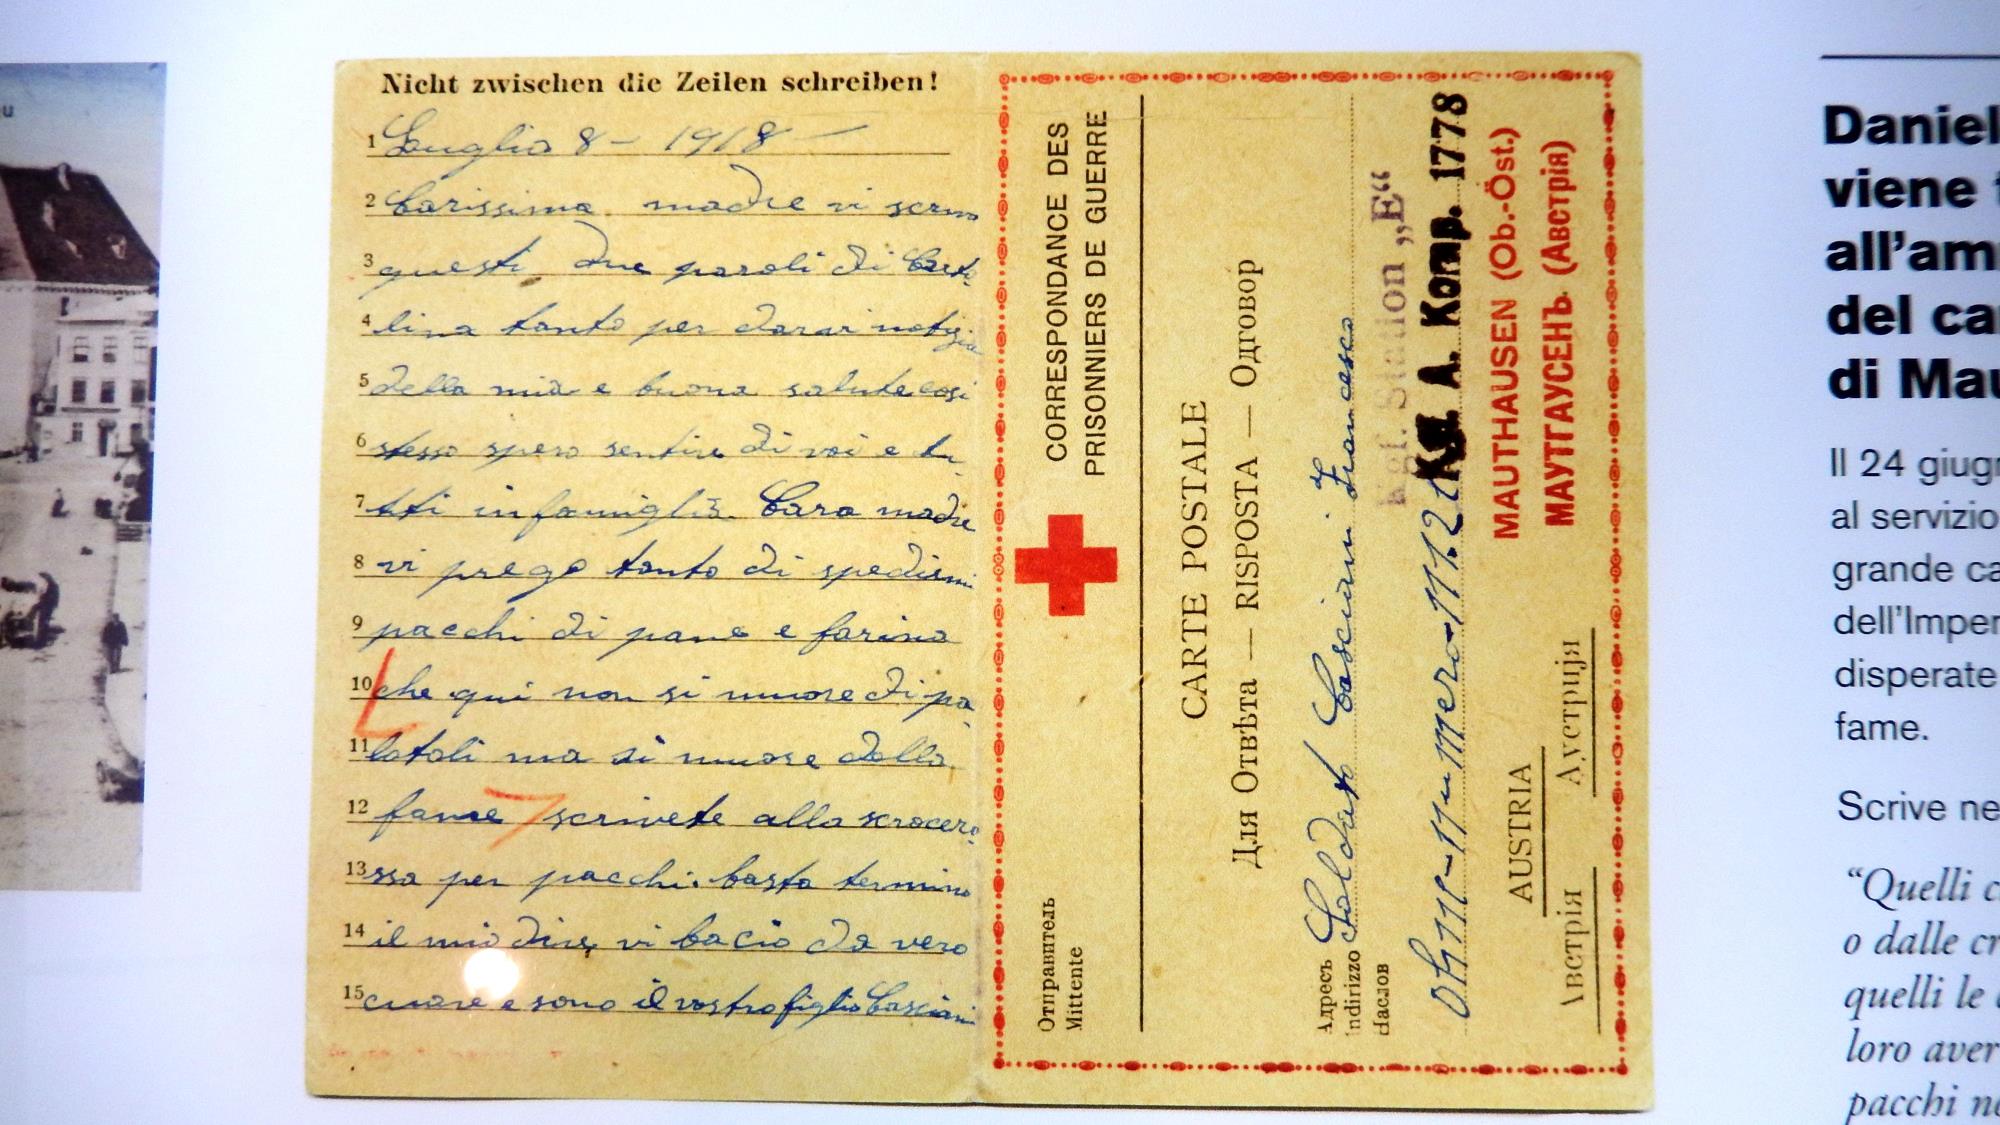 u
Nicht zwischen die Zeilen schreiben!
1 Luglio 8 - 1918 -
2 Carissima madre vi scrivo
3 questi due paroli di Carto
4 lina tanto per darvi notizia
5 della mia e buona salute cosi
6 stesso spero sentire di voi e tu
7 tti in famiglia. Cara madre
8 vi prego tanto di spedirmi
9 pacchi di pane e farina
10 che qui non si muore di pa
11 lotoli ma si muore della
12 fame scrivete alla scrocero
13 ssa per pacchi. basta termino
14 il mio dire, vi bacio da vero
15 cuore e sono il vostro figlio Casciani
CORRESPONDANCE DES
PRISONNIERS DE GUERRE
Отправитель
Mittente
CARTE POSTALE
Для Отвѣта — RISPOSTA — Одговор
Адресъ
Indirizzo
Наслов
Soldato Casciani Francesco
Kgf. Station „E“
Kgf. A. Komp. 1778
MAUTHAUSEN (Ob.-Öst.)
МАУТГАУСЕНЪ (Австрія)
AUSTRIA
Австрія
Аустрија
Daniel
viene
all'am
del ca
di Mau
Il 24 giugn
al servizio
grande ca
dell'Imper
disperate
fame.
Scrive ne
“Quelli c
o dalle cr
quelli le
loro aver
pacchi no